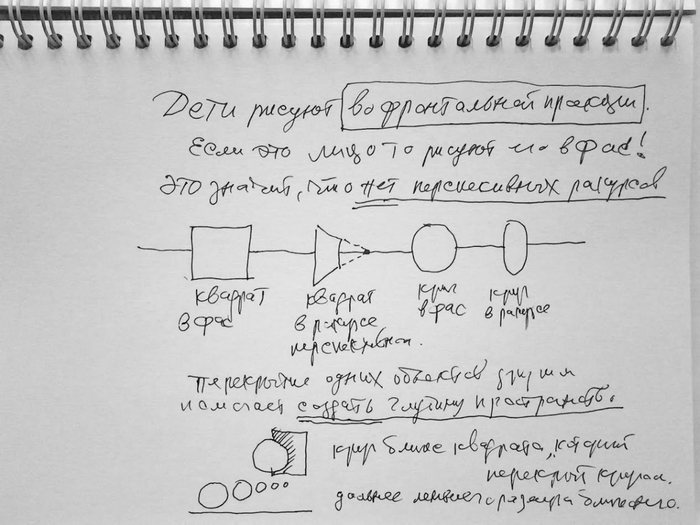 Дети рисуют во фронтальной проекции.
Если это лицо то рисуют его в фас!
Это значит, что нет перспективных ракурсов
квадрат в фас
квадрат в ракурсе перспективном.
круг в фас
круг в ракурсе
перекрытие одних объектов другими
помогает создать глубину пространства.
круг ближе квадрата, который
перекрыт кругом.
дальнее меньшего размера ближнего.